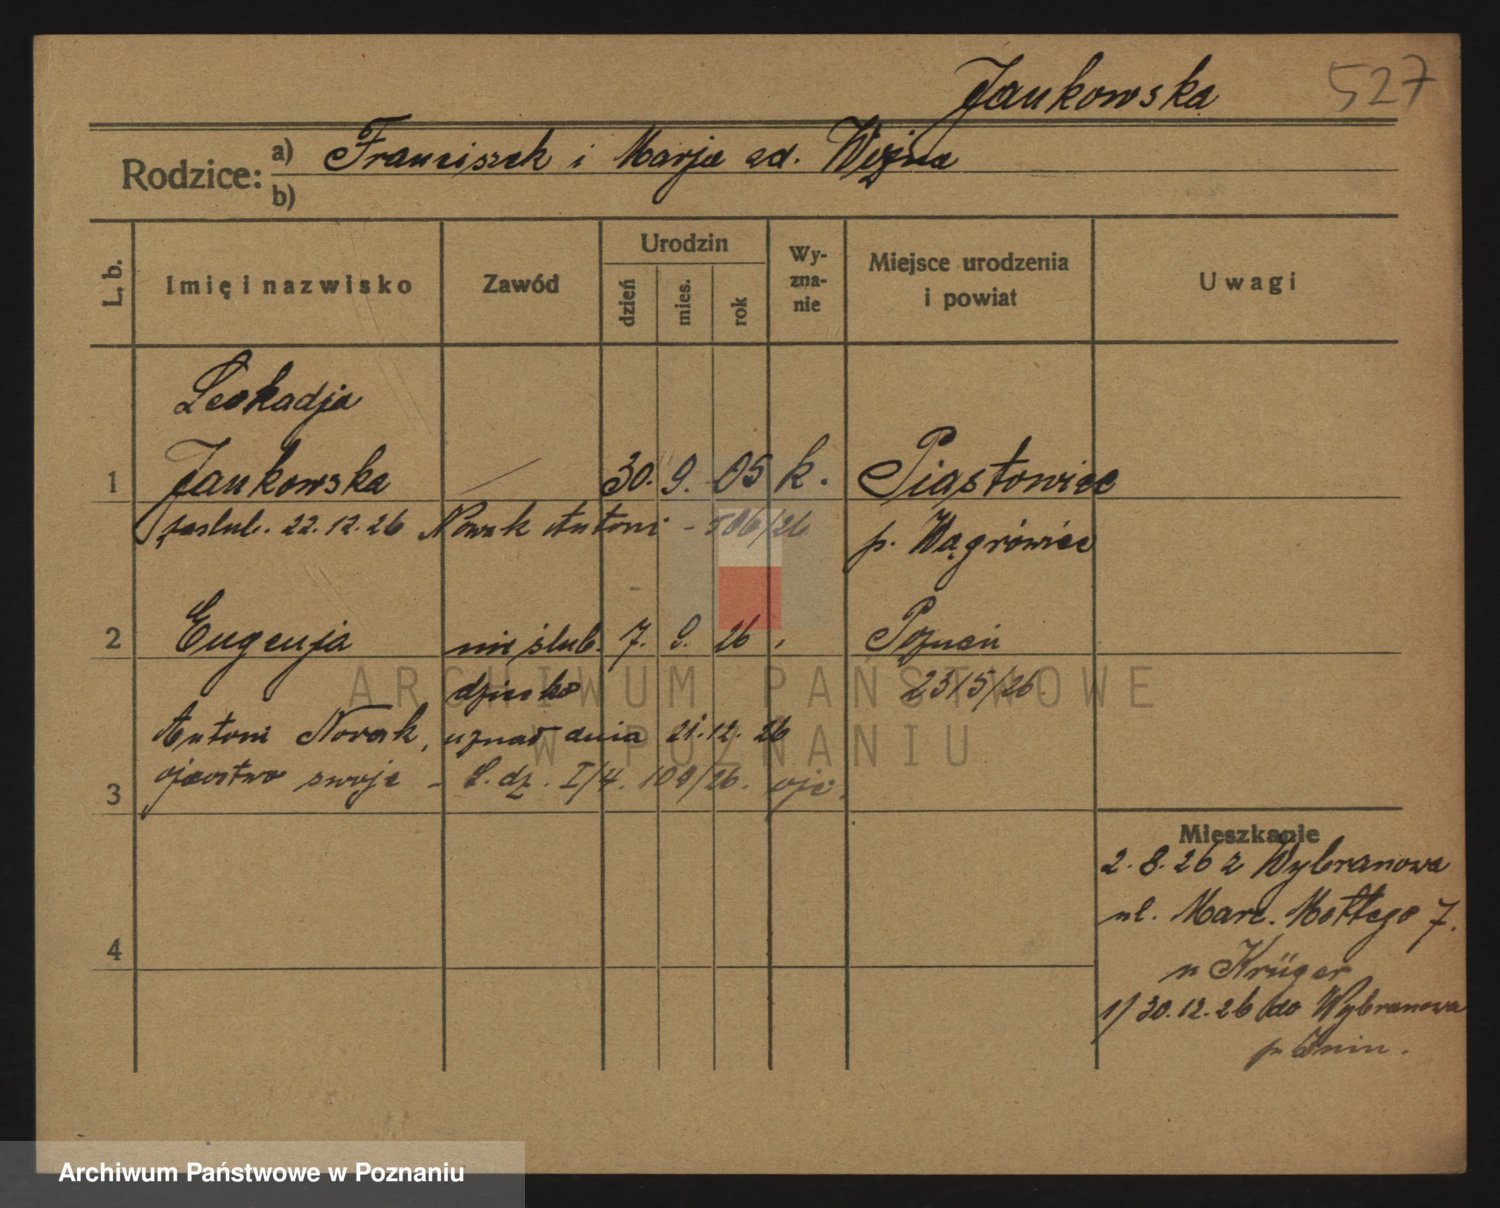 Jankowska 527
Rodzice: a) Franciszek i Marja zd. Wojna
b)
L. b. Imię i nazwisko Zawód Urodzin dzień mies. rok Wyznanie Miejsce urodzenia i powiat Uwagi
Leokadja
1 Jankowska — 30. 9. 05 k. Piastowice
zaślub. 22.12.26 Nowak Antoni - 586/26 p. Wągrówiec
2 Eugenja nieślub. 7. 9. 26 , Poznań
dziecko 2315/26.
Antoni Nowak, uznał dnia 21.12.26
ojcostwo swoje - L. dz. I/4. 109/26.
3
Mieszkanie
2.8.26 z Wybranowa
ul. Marc. Mottego 7.
u Krüger
4
1/ 30.12.26 do Wybranowa
p. Żnin.
ARCHIWUM PAŃSTWOWE
W POZNANIU
Archiwum Państwowe w Poznaniu